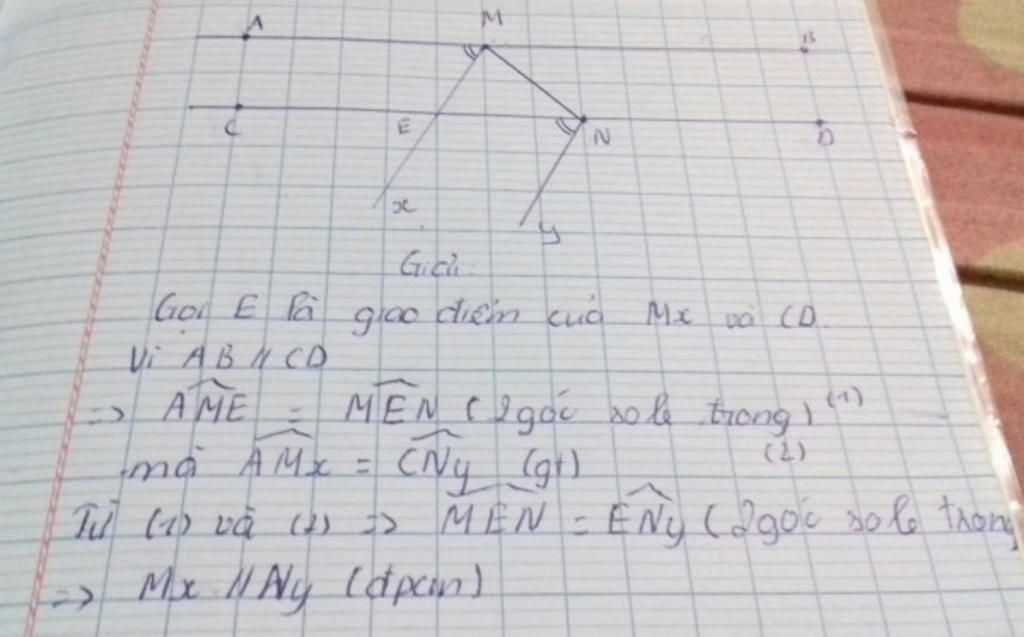 A M B
C E N D
x y
Giải
Gọi E là giao điểm của Mx và CD.
Vì AB // CD
=> AME = MEN (2 góc so le trong) (1)
mà AMx = CNy (gt) (2)
Từ (1) và (2) => MEN = ENy (2 góc so le trong
=> Mx // Ny (đpcm)